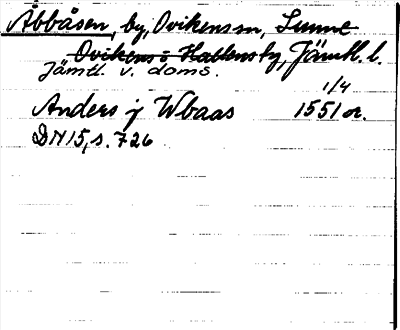 Åbbåsen, by, Ovikens sn, Sunne
Ovikens o Hallens ty, Jämtl. l.
Jämtl. v. doms.
1/4
Anders j Wbaas 1551 or.
DN15, s. 726